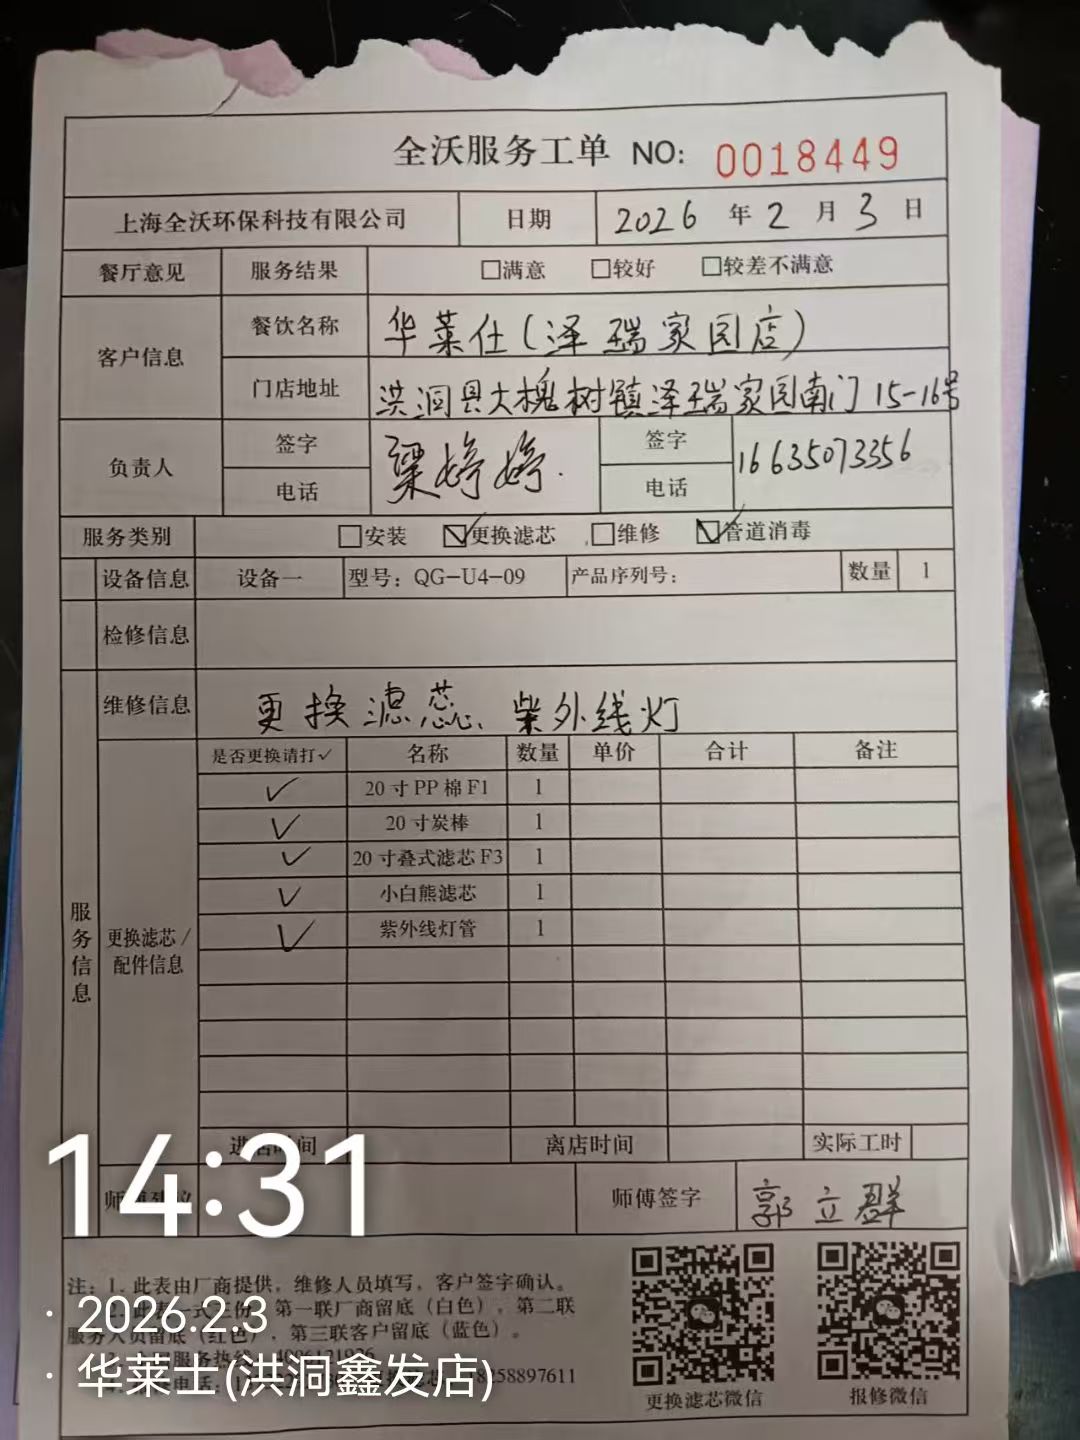 全沃服务工单 NO: 0018449
上海全沃环保科技有限公司 日期 2026 年 2 月 3 日
餐厅意见 服务结果 □满意 □较好 □较差不满意
客户信息 餐饮名称 华莱仕(泽瑞家园店)
门店地址 洪洞县大槐树镇泽瑞家园南门15-16号
负责人 签字 梁婷婷 签字 16635073356
电话 电话
服务类别 □安装 ☑更换滤芯 □维修 ☑管道消毒
设备信息 设备一 型号: QG-U4-09 产品序列号: 数量 1
检修信息
维修信息 更换滤芯、紫外线灯
是否更换请打✓ 名称 数量 单价 合计 备注
✓ 20寸PP棉F1 1
✓ 20寸炭棒 1
✓ 20寸叠式滤芯F3 1
✓ 小白熊滤芯 1
✓ 紫外线灯管 1
服务信息
更换滤芯/
配件信息
离店时间 实际工时
14:31
师傅签字 郭立群
注: 1、此表由厂商提供, 维修人员填写, 客户签字确认。
第一联厂商留底(白色), 第二联
服务人员留底(红色), 第三联客户留底(蓝色)。
· 2026.2.3
· 华莱士(洪洞鑫发店)
58897611
更换滤芯微信 报修微信